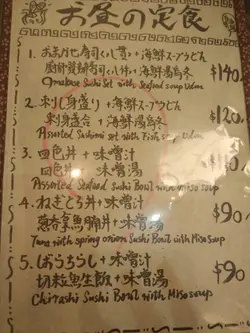 お昼の定食
1. おまかせ寿司(八貫)+海鮮スープうどん
廚師發辦壽司(八件)+海鮮湯烏冬
Omakase Sushi Set with Seafood soup Udon
$140.
2. 刺し身盛り+海鮮スープうどん
刺身盛合+海鮮湯烏冬
Assorted Sashimi set with Fish soup Udon
$120.
3. 四色丼+味噌汁
四色丼+味噌湯
Assorted Seafood sushi Bowl with Miso soup
4. ねぎとろ丼+味噌汁
葱吞拿魚腩丼+味噌湯
Tuna with spring onion Sushi Bowl with Miso Soup
$90.
5. ばらちらし+味噌汁
切粒魚生飯+味噌湯
Chirashi Sushi Bowl with Miso soup
$90.